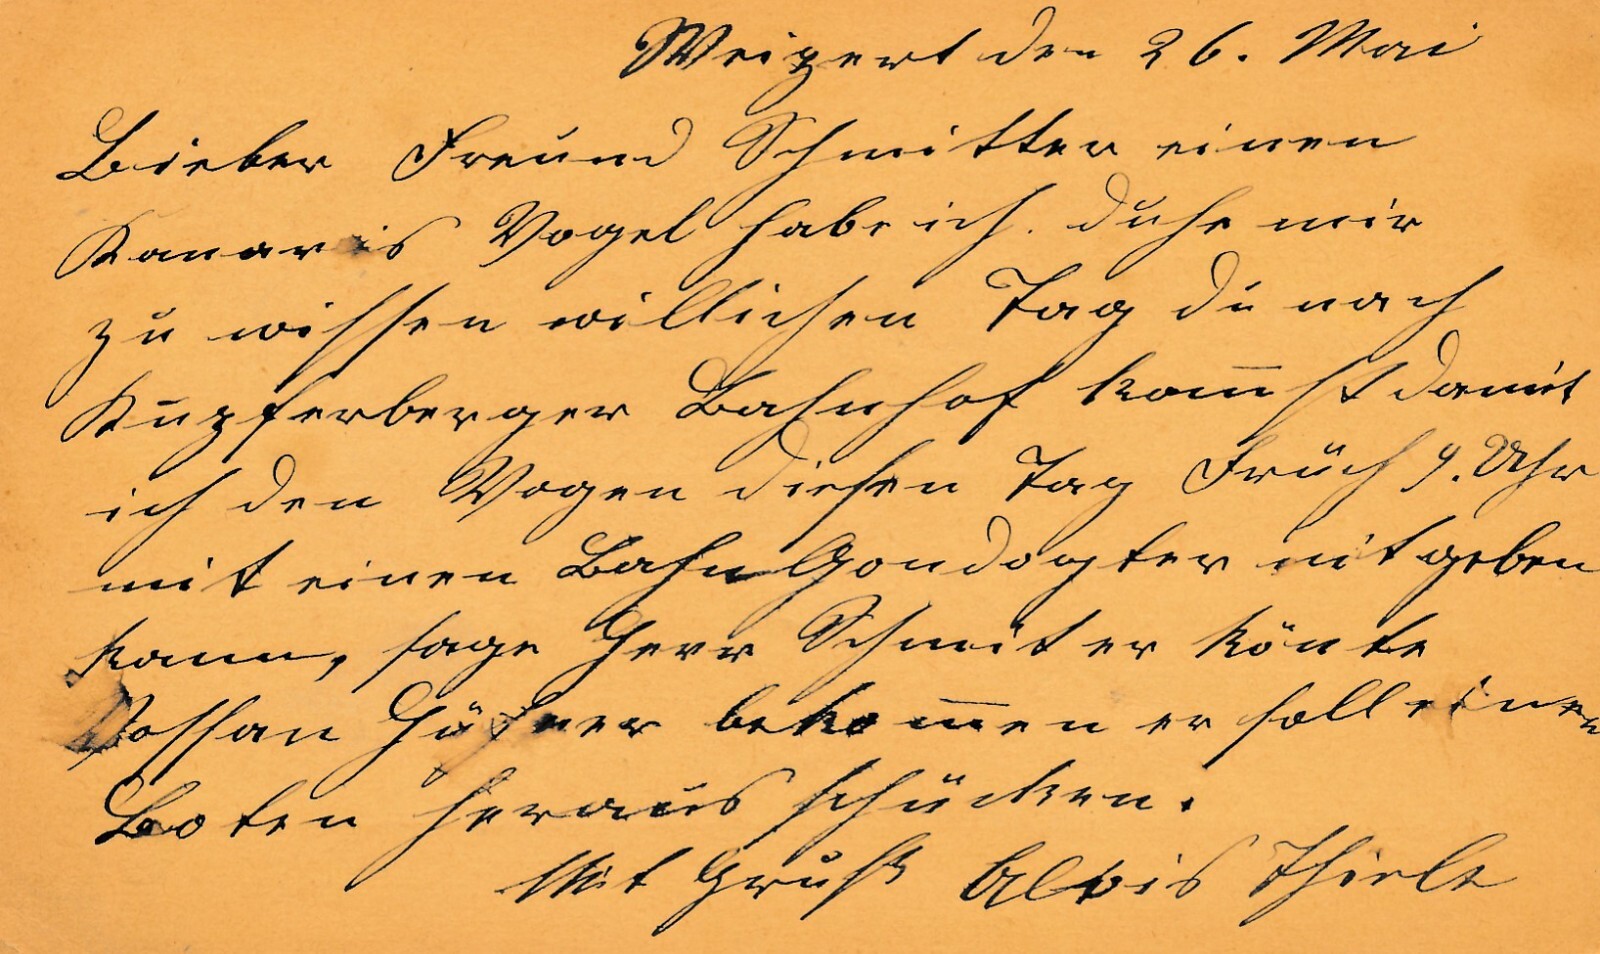 Weipert den 26. Mai
Lieber Freund Schmitter einen
Kanaris Vogel habe ich. duhe mir
zu wissen willichen Tag du nach
Kupferberger Bahnhof kom̅st damit
ich den Vogen diesen Tag Früh 9. Uhr
mit einen Bahn Condogter mitgeben
kann, sage Herr Schmitter könte
Hühner beko̅men er soll einen
Boten heraus schücken.
Mit Gruß Alois Thiele